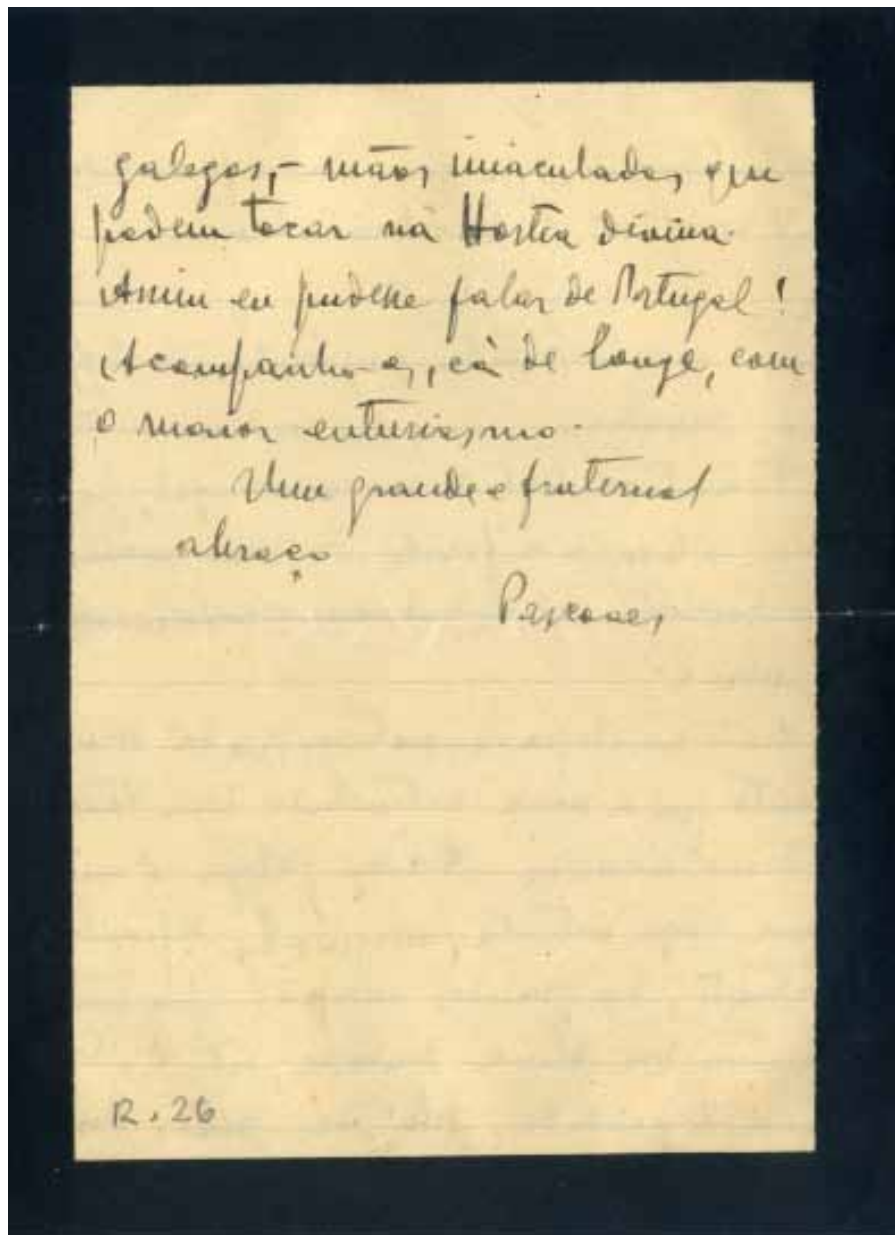 galegos, – mãos imaculadas que
podem tocar na Hostia divina.
Assim eu pudesse falar de Portugal!
Acompanho-os, cá de longe, com
o maior entusiasmo.
Um grande e fraternal
abraço
Pascoaes
R. 26